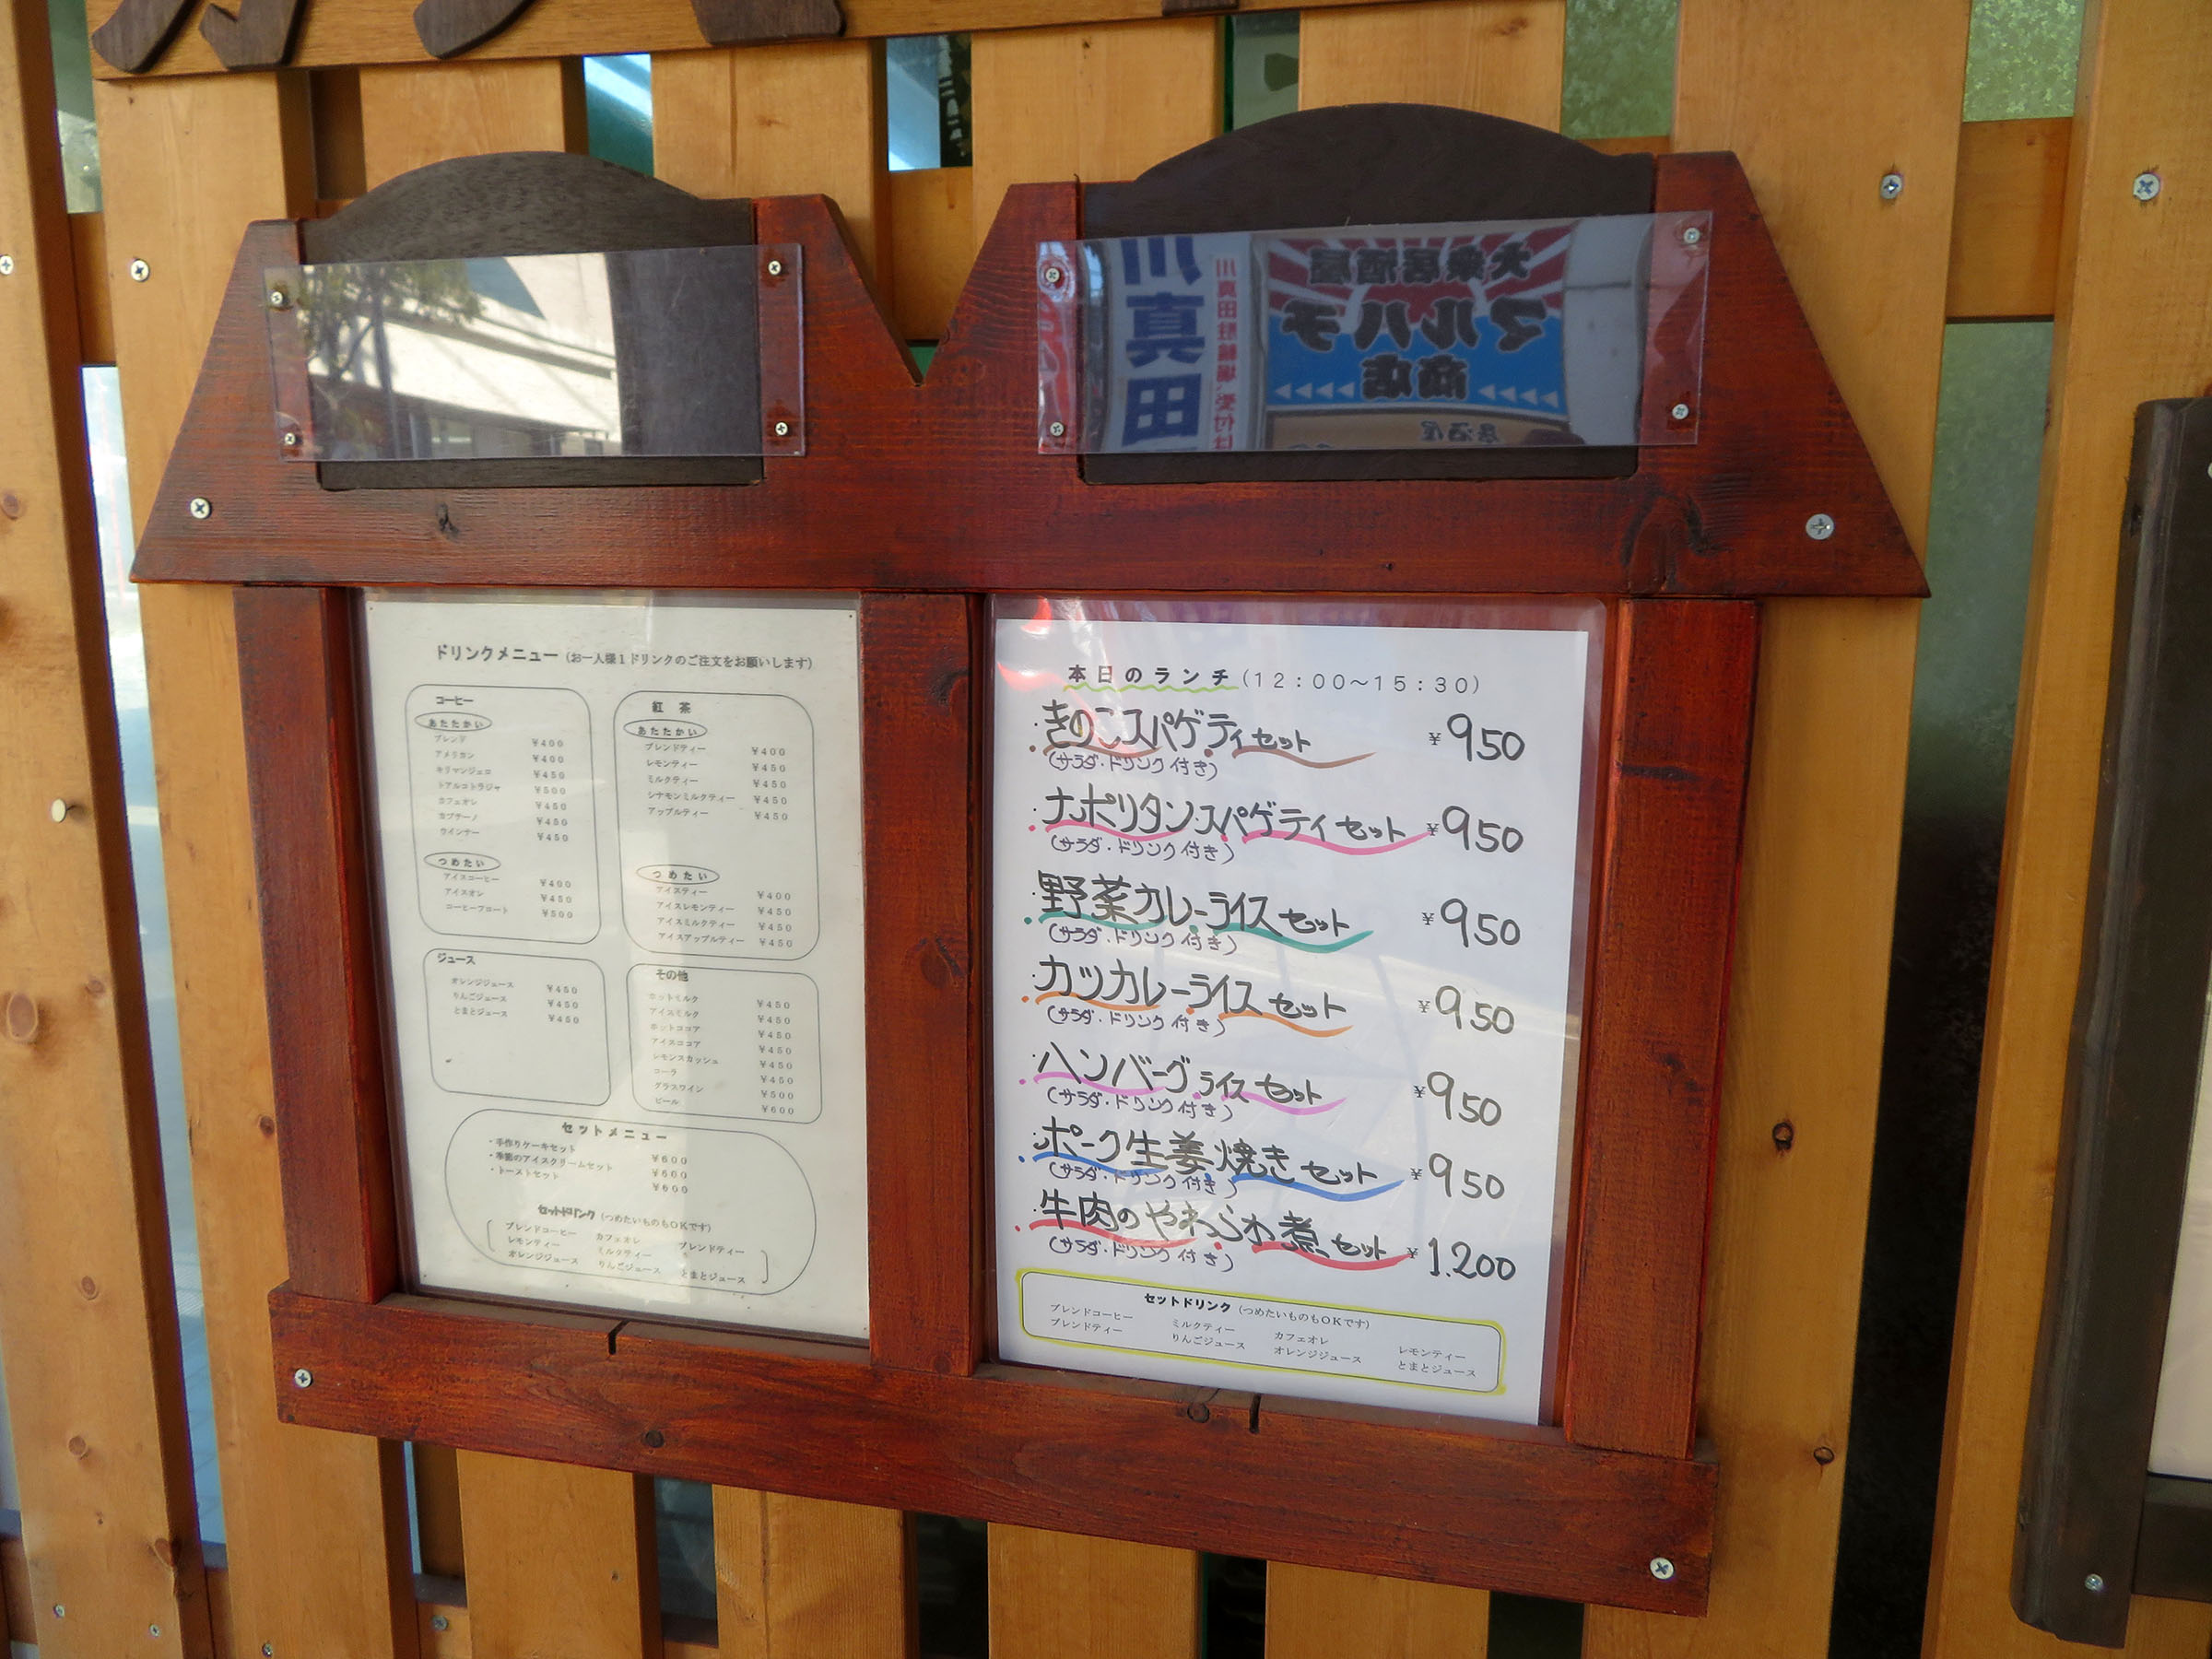 川真田
川真田駐輪場
受付は
大衆居酒屋
マルハチ
商店
居酒屋
ドリンクメニュー (お一人様1ドリンクのご注文をお願いします)
コーヒー
あたたかい
ブレンド ¥400
アメリカン ¥400
キリマンジェロ ¥450
トアルコトラジャ ¥500
カフェオレ ¥450
カプチーノ ¥450
ウインナー ¥450
つめたい
アイスコーヒー ¥400
アイスオレ ¥450
コーヒーフロート ¥500
紅 茶
あたたかい
ブレンドティー ¥400
レモンティー ¥450
ミルクティー ¥450
シナモンミルクティー ¥450
アップルティー ¥450
つめたい
アイスティー ¥400
アイスレモンティー ¥450
アイスミルクティー ¥450
アイスアップルティー ¥450
ジュース
オレンジジュース ¥450
りんごジュース ¥450
とまとジュース ¥450
その他
ホットミルク ¥450
アイスミルク ¥450
ホットココア ¥450
アイスココア ¥450
レモンスカッシュ ¥450
コーラ ¥450
グラスワイン ¥500
ビール ¥600
セットメニュー
・手作りケーキセット ¥600
・季節のアイスクリームセット ¥600
・トーストセット ¥600
セットドリンク (つめたいものもOKです)
ブレンドコーヒー カフェオレ ブレンドティー
レモンティー ミルクティー
オレンジジュース りんごジュース とまとジュース
本日のランチ (12:00〜15:30)
・きのこスパゲティセット ¥950
(サラダ・ドリンク付き)
・ナポリタンスパゲティセット ¥950
(サラダ・ドリンク付き)
・野菜カレーライスセット ¥950
(サラダ・ドリンク付き)
・カツカレーライスセット ¥950
(サラダ・ドリンク付き)
・ハンバーグライスセット ¥950
(サラダ・ドリンク付き)
・ポーク生姜焼きセット ¥950
(サラダ・ドリンク付き)
・牛肉のやわらか煮セット ¥1.200
(サラダ・ドリンク付き)
セットドリンク (つめたいものもOKです)
ブレンドコーヒー ミルクティー カフェオレ レモンティー
ブレンドティー りんごジュース オレンジジュース とまとジュース